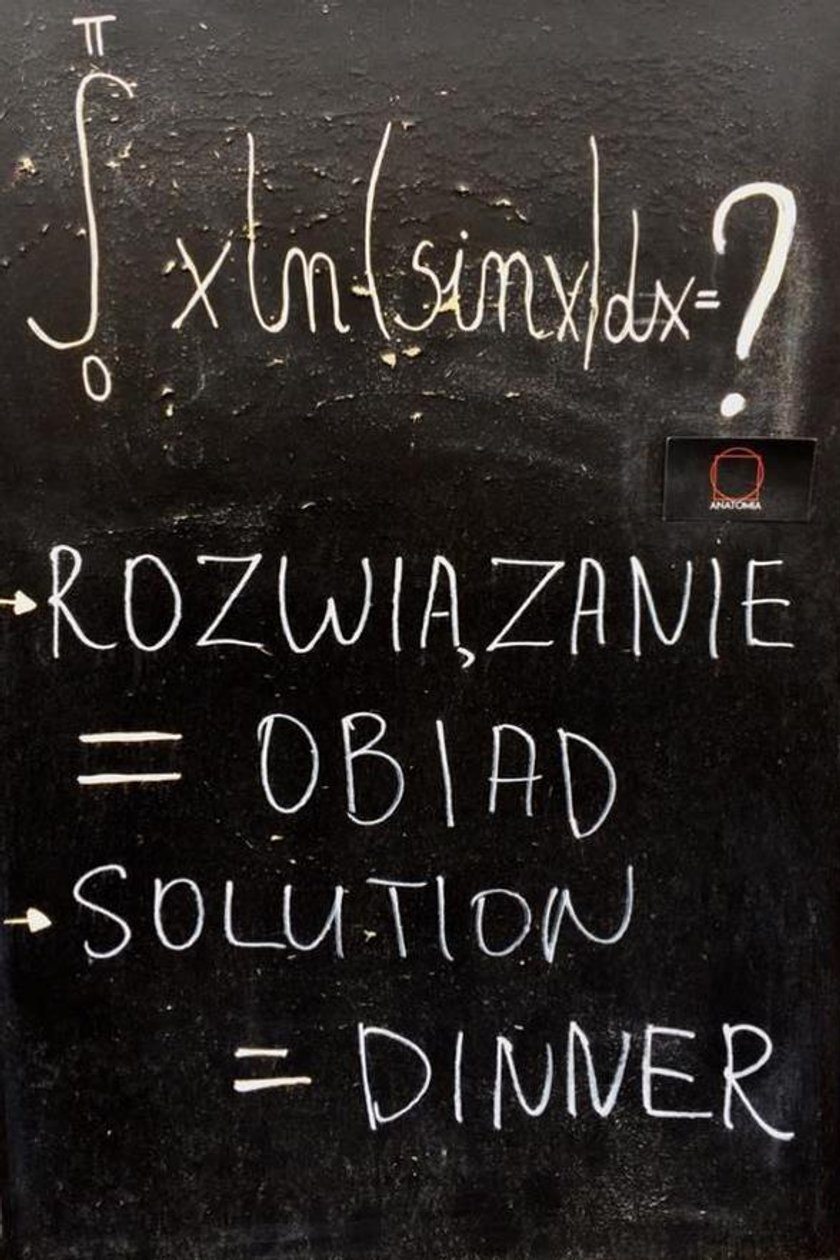 π
∫ x ln(sinx)dx=?
0
ANATOMIA
→ROZWIĄZANIE
= OBIAD
→ SOLUTION
= DINNER